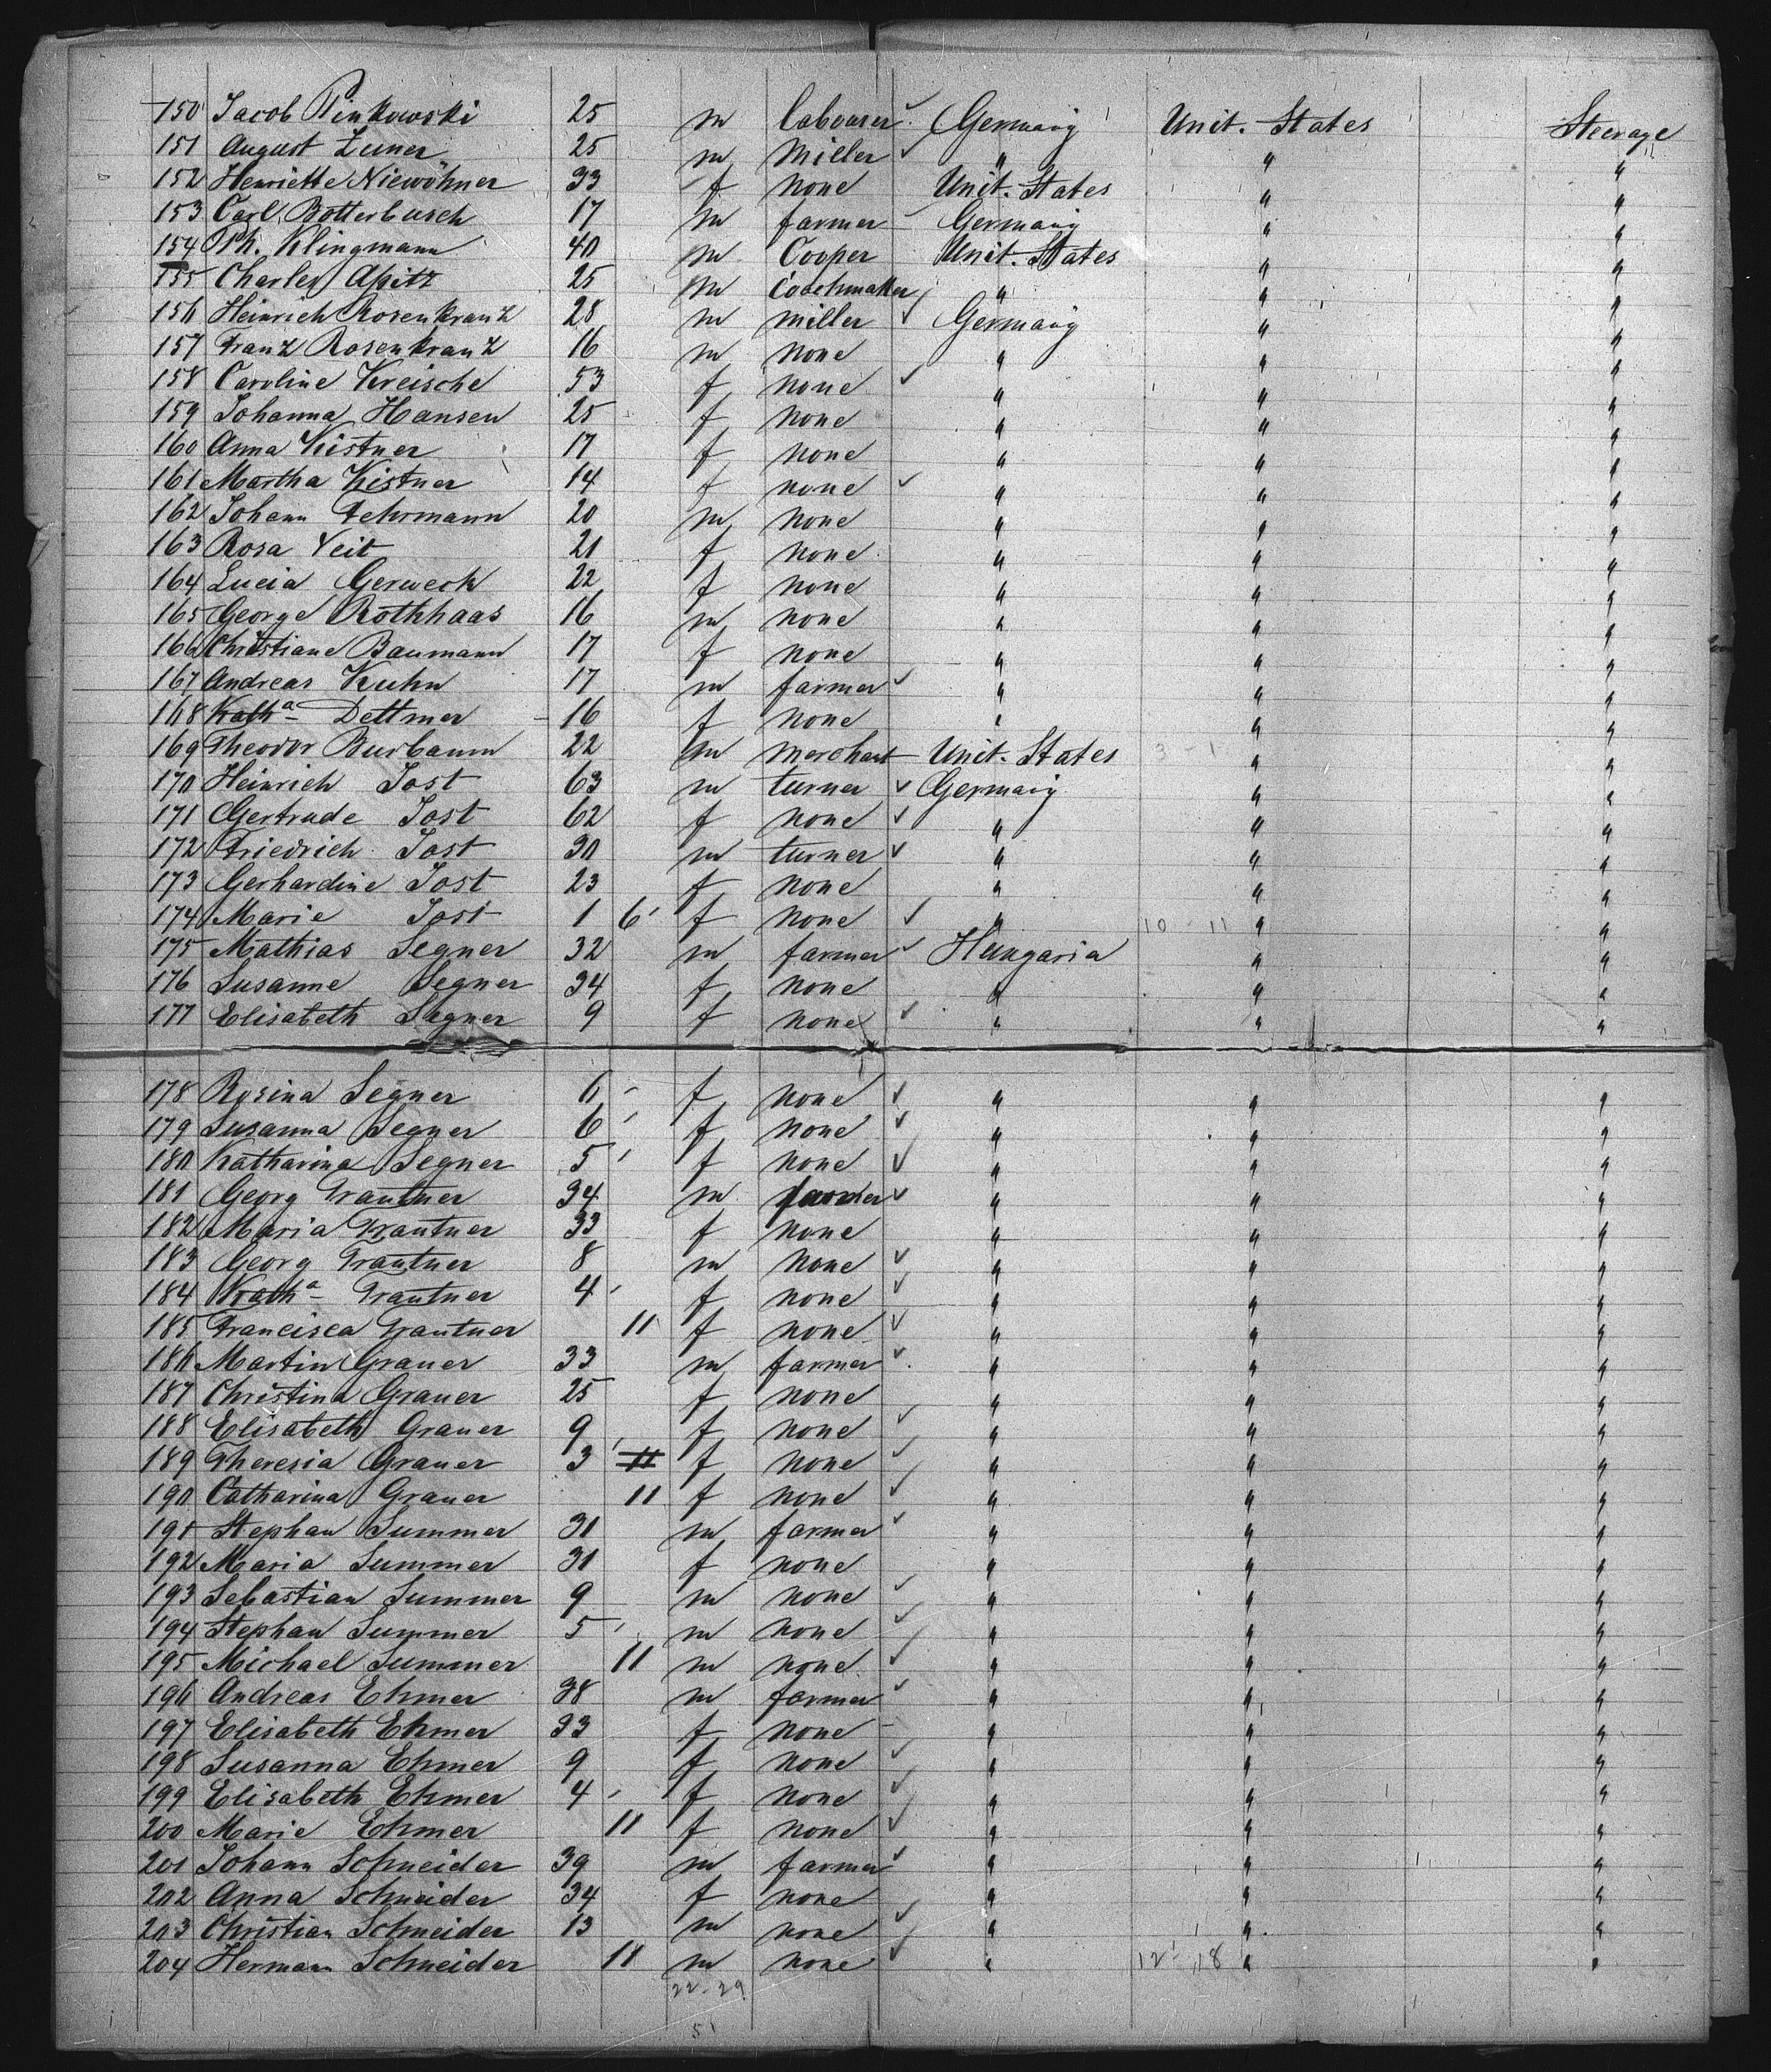 150 Jacob Pinkowski 25 m labourer Germany Unit. States Steerage
151 August Zuner 25 m Miller " " "
152 Henriette Niewöhner 33 f none Unit. States " "
153 Carl Botterbusch 17 m farmer Germany " "
154 Ph. Klingmann 40 m Cooper Unit. States " "
155 Charles Apitz 25 m Coachmaker " " "
156 Heinrich Rosenkranz 28 m miller Germany " "
157 Franz Rosenkranz 16 m none " " "
158 Caroline Kreische 53 f none " " "
159 Johanna Hansen 25 f none " " "
160 Anna Kistner 17 f none " " "
161 Martha Kistner 14 f none " " "
162 Johann Fehrmann 20 m none " " "
163 Rosa Veit 21 f none " " "
164 Lucia Gerweck 22 f none " " "
165 George Rothhaas 16 m none " " "
166 Christiane Baumann 17 f none " " "
167 Andreas Kuhn 17 m farmer " " "
168 Kath.a Dettmer 16 f none " " "
169 Theodor Burbaum 22 m merchant Unit. States " "
170 Heinrich Jost 63 m turner Germany " "
171 Gertrude Jost 62 f none " " "
172 Friedrich Jost 30 m turner " " "
173 Gerhardine Jost 23 f none " " "
174 Marie Jost 1 6 f none " 10 - 11 " "
175 Mathias Segner 32 m farmer Hungaria " "
176 Susanne Segner 34 f none " " "
177 Elisabeth Segner 9 f none " " "
178 Rosina Segner 6 f none " " "
179 Susanna Segner 6 f none " " "
180 Katharina Segner 5 f none " " "
181 Georg Trautner 34 m farmer " " "
182 Maria Trautner 33 f none " " "
183 Georg Trautner 8 m none " " "
184 Kath.a Trautner 4 f none " " "
185 Francisca Trautner 11 f none " " "
186 Martin Grauer 33 m farmer " " "
187 Christina Grauer 25 f none " " "
188 Elisabeth Grauer 9 f none " " "
189 Theresia Grauer 3 11 f none " " "
190 Catharina Grauer 11 f none " " "
191 Stephan Summer 31 m farmer " " "
192 Maria Summer 31 f none " " "
193 Sebastian Summer 9 m none " " "
194 Stephan Summer 5 m none " " "
195 Michael Summer 11 m none " " "
196 Andreas Ehmer 38 m farmer " " "
197 Elisabeth Ehmer 33 f none " " "
198 Susanna Ehmer 9 f none " " "
199 Elisabeth Ehmer 4 f none " " "
200 Marie Ehmer 11 f none " " "
201 Johann Schneider 39 m farmer " " "
202 Anna Schneider 34 f none " " "
203 Christian Schneider 13 m none " " "
204 Hermann Schneider 11 m none " 12 - 18 " "
22-29
51